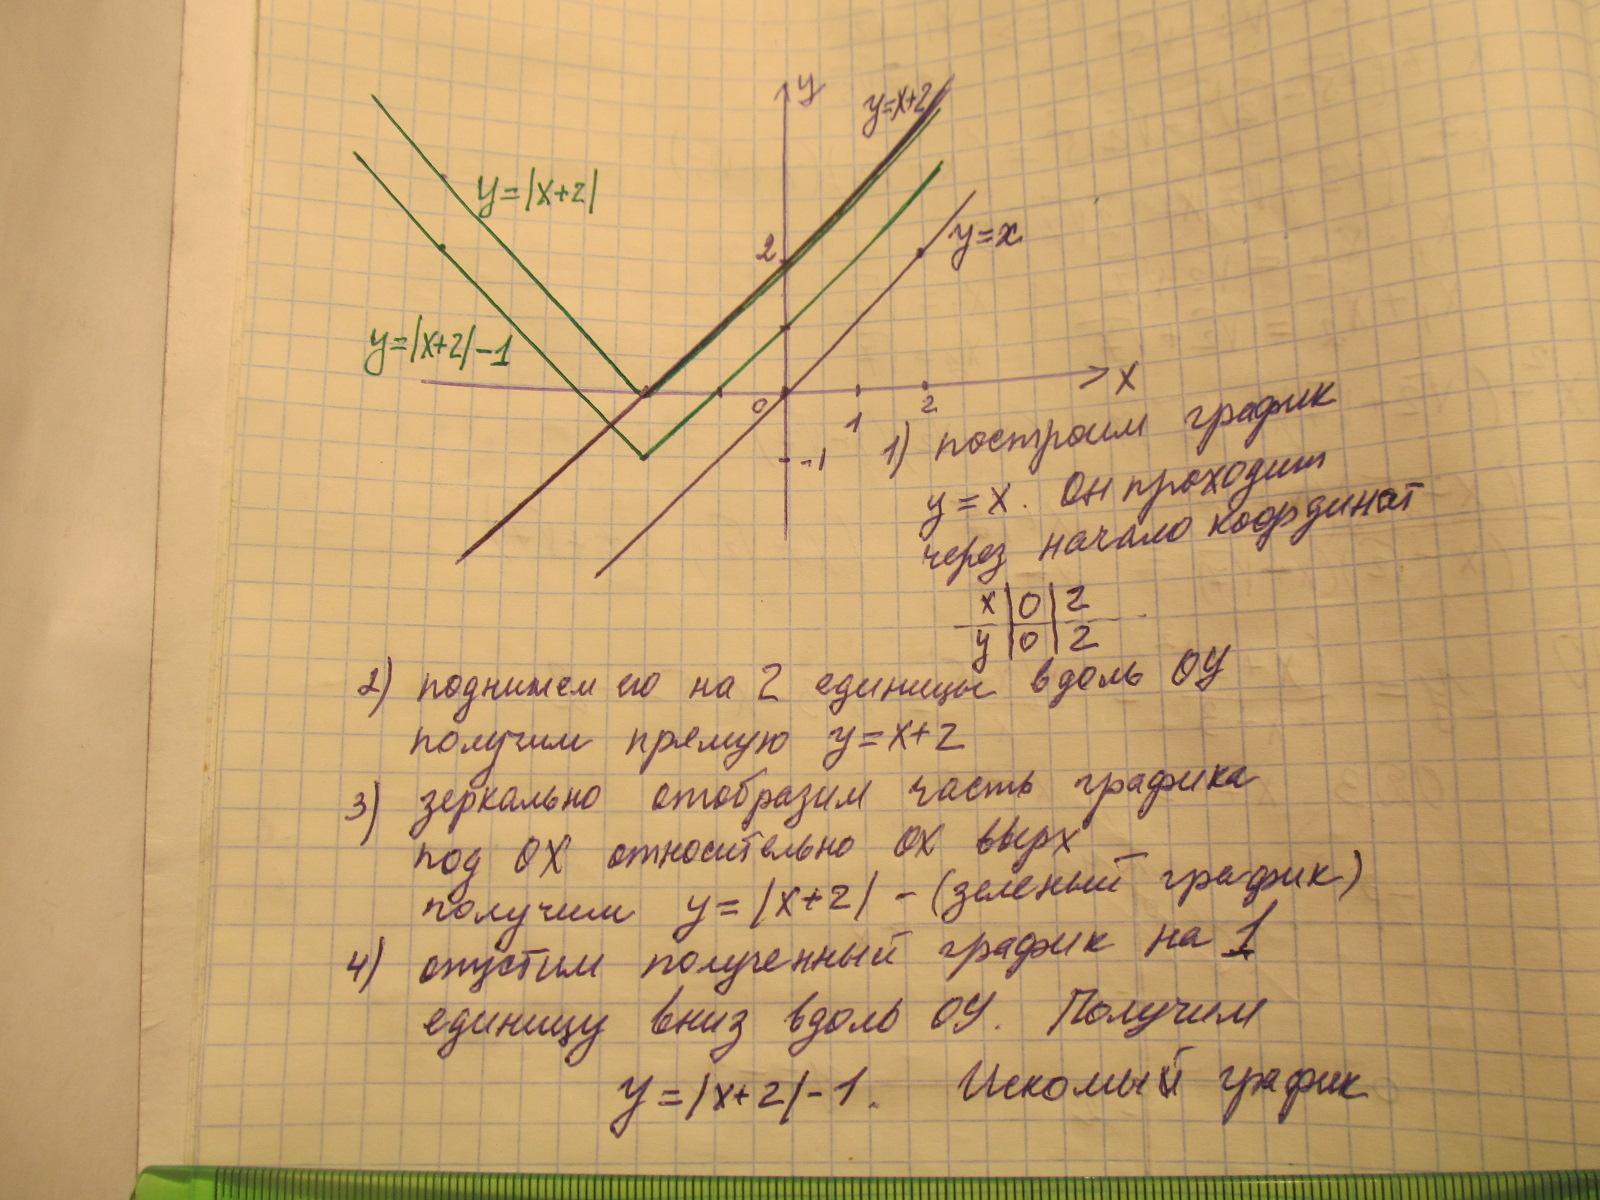 y
y=x+2
y=|x+2|
2
y=x
y=|x+2|-1
x
0
1
2
-1
1) построим график
y=x. Он проходит
через начало координат
x|0|2
y|0|2
2) поднимем его на 2 единицы вдоль ОУ
получим прямую y=x+2
3) зеркально отобразим часть графика
под ОХ относительно ОХ вверх
получим y=|x+2| - (зеленый график)
4) опустим полученный график на 1
единицу вниз вдоль ОУ. Получим
y=|x+2|-1. Искомый график